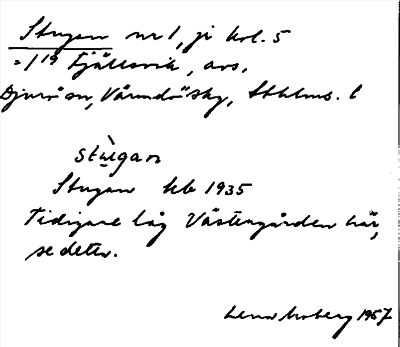 Stugan nr 1, ji kol. 5
= 1/19 Fjällsvik, avs.
Djurö sn, Värmdö skg, Sthlms. l
stùgan
Stugan kb 1935
Tidigare låg Västergården här,
se detta.
Lena Moberg 1957